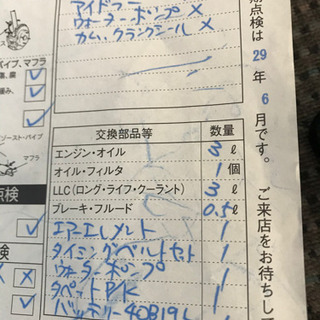 アイドラー ×
ウォーターポンプ ×
カム、クランクシール ×
期点検は 29 年 6 月です。 ご来店をお待ちして
パイプ、マフラ
マフラ
点検
交換部品等 数量
エンジン・オイル 3 ℓ
オイル・フィルタ 1 個
LLC(ロング・ライフ・クーラント) 3 ℓ
ブレーキ・フルード 0.5 ℓ
エアーエレメント 1
タイミングベルトセット 1
ウォーターポンプ 1
タペットP/K 1
バッテリー 40B19L 1